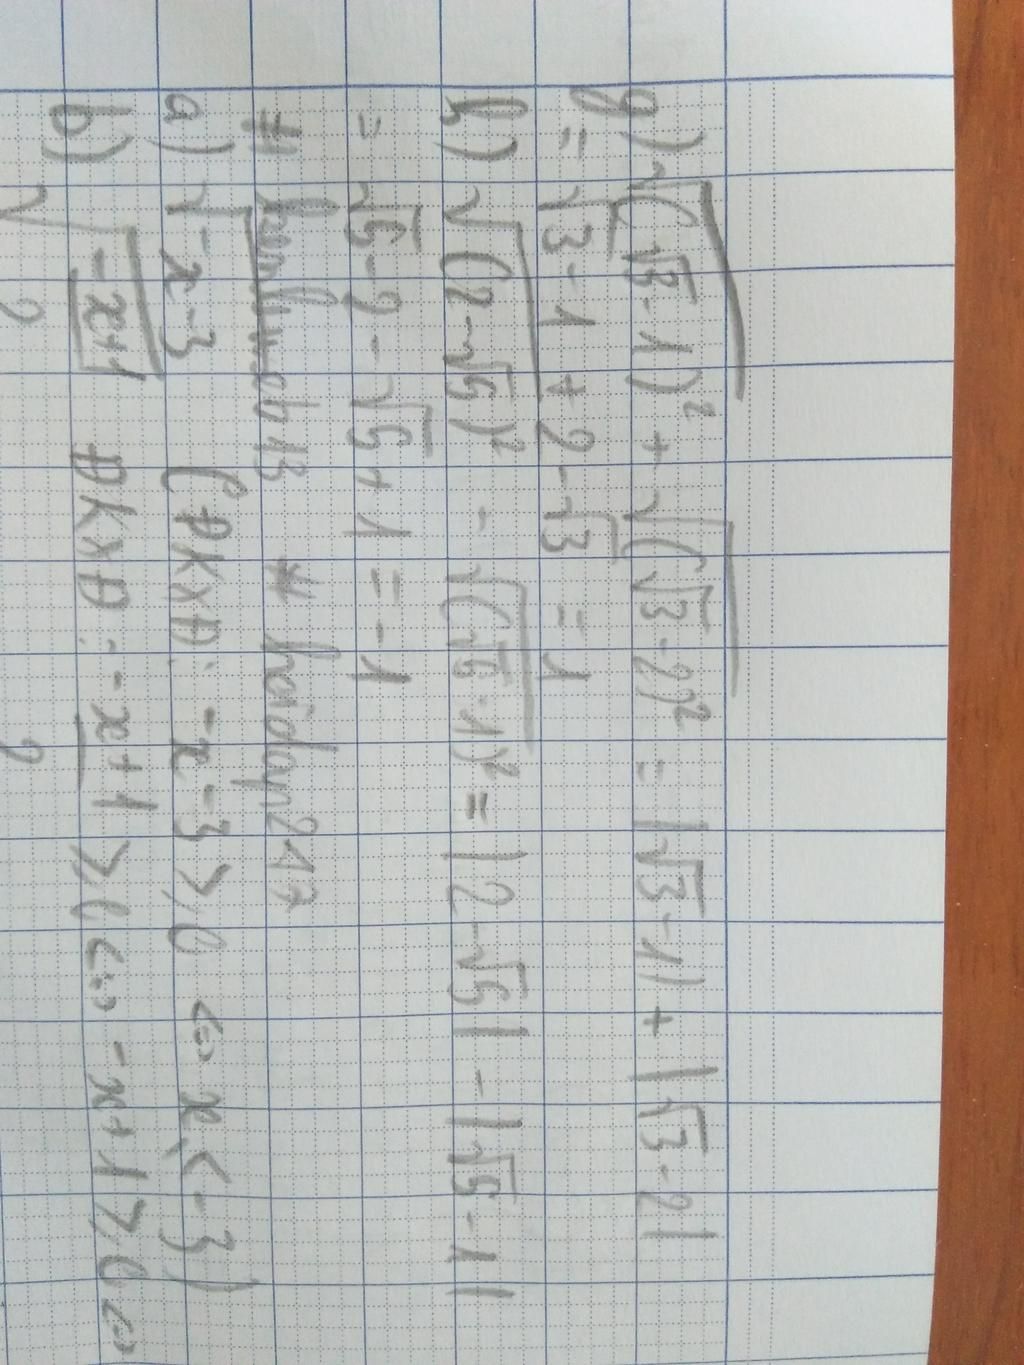 g) √(√3-1)² + √(√3-2)² = |√3-1| + |√3-2|
= √3-1 + 2-√3 = 1
h) √(2-√5)² - √(√5-1)² = |2-√5| - |√5-1|
= √5-2-√5+1 = -1
* hoidap247
a) √-x-3 (ĐKXĐ: -x-3 ≥ 0 <=> x ≤ -3)
b) √-x+1/2 ĐKXĐ: -x+1/2 ≥ 0 <=> -x+1 ≥ 0 <=>